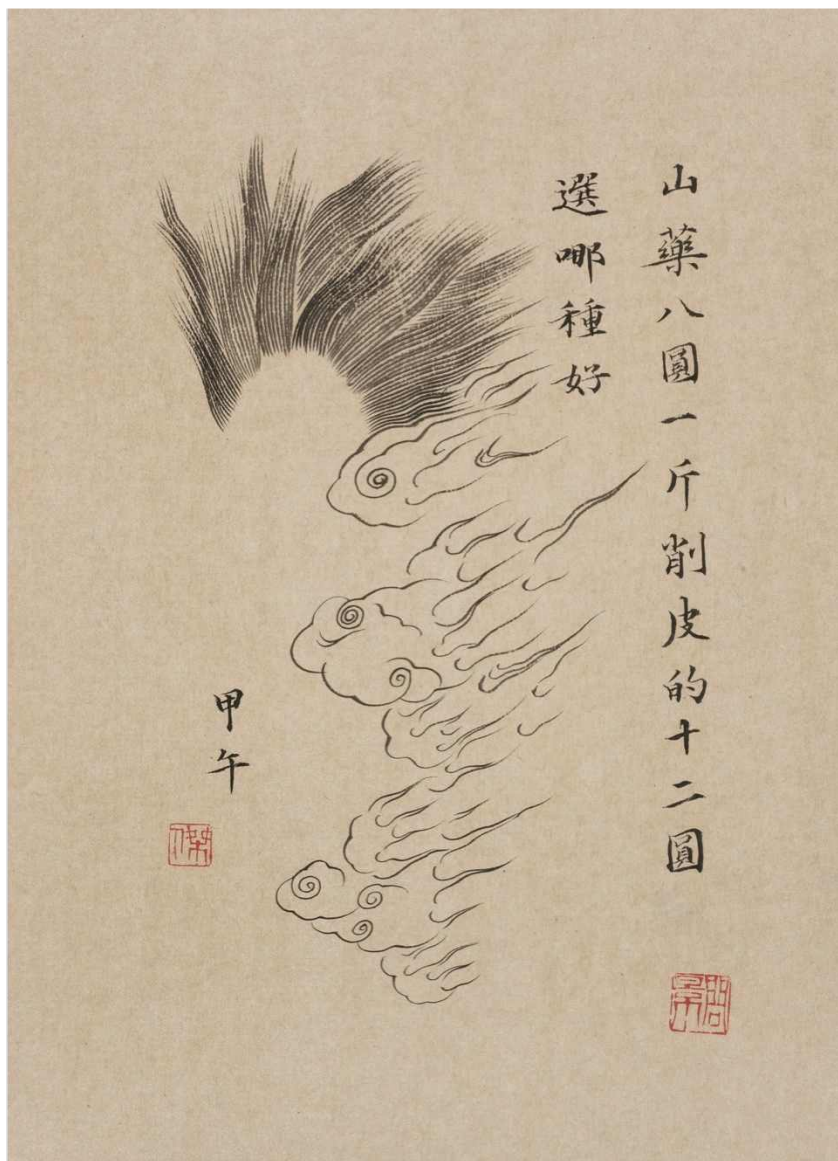 山藥八圓一斤削皮的十二圓
選哪種好
甲午
傑